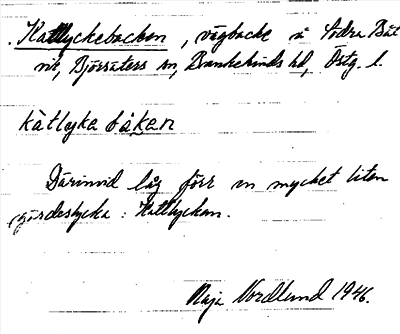 Kattlyckebacken, vägbacke i Södra Båt
vik, Björsäters sn, Bankekinds hd, Östg. l.
kàtlyka bàkan
Därinvid låg förr en mycket liten
gärdeslycka: Kattlyckan.
Maja Nordlund 1946.